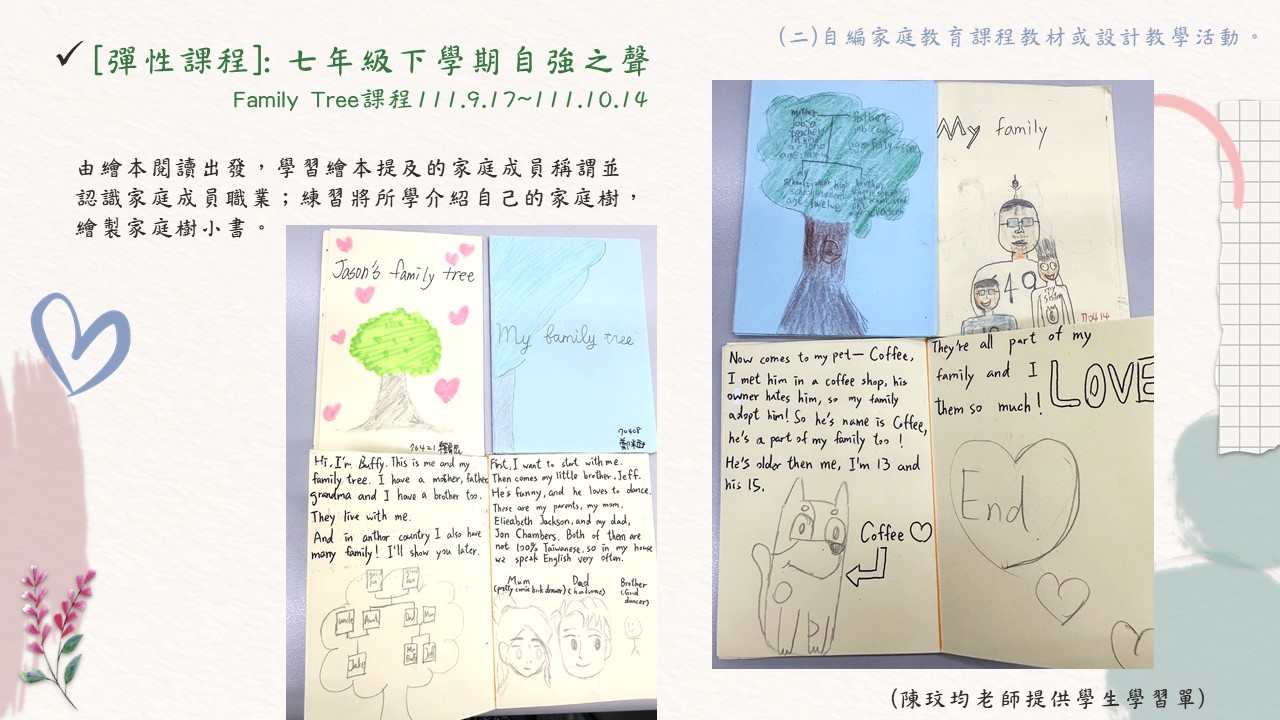 (二)自編家庭教育課程教材或設計教學活動。
✓[彈性課程]: 七年級下學期自強之聲
Family Tree課程111.9.17~111.10.14
由繪本閱讀出發，學習繪本提及的家庭成員稱謂並
認識家庭成員職業；練習將所學介紹自己的家庭樹，
繪製家庭樹小書。
Jason's family tree
70421
My family tree
70408
Hi, I'm Buffy. This is me and my
family tree. I have a mother, father
grandma and I have a brother too.
They live with me.
And in anthor country I also have
many family! I'll show you later.
Uncle
Aunt
Dad
Mum
Jake
Me
Buffy
Jeff
First, I want to start with me.
Then comes my little brother, Jeff.
He's funny, and he loves to dance.
These are my parents, my mom.
Elizabeth Jackson, and my dad,
Jon Chambers. Both of them are
not 100% Taiwanese, so in my house
we speak English very often.
Mum
(pretty comic book drawer)
Dad
(handsome)
Brother
(Good
dancer)
mother
job a
teacher
father
My family
40
my
sister
70414
Now comes to my pet— Coffee,
I met him in a coffee shop, his
owner hates him, so my family
adopt him! So he's name is Coffee,
he's a part of my family too !
He's older then me, I'm 13 and
his 15.
Coffee
They're all part of my
family and I LOVE
them so much!
End
(陳玟均老師提供學生學習單)